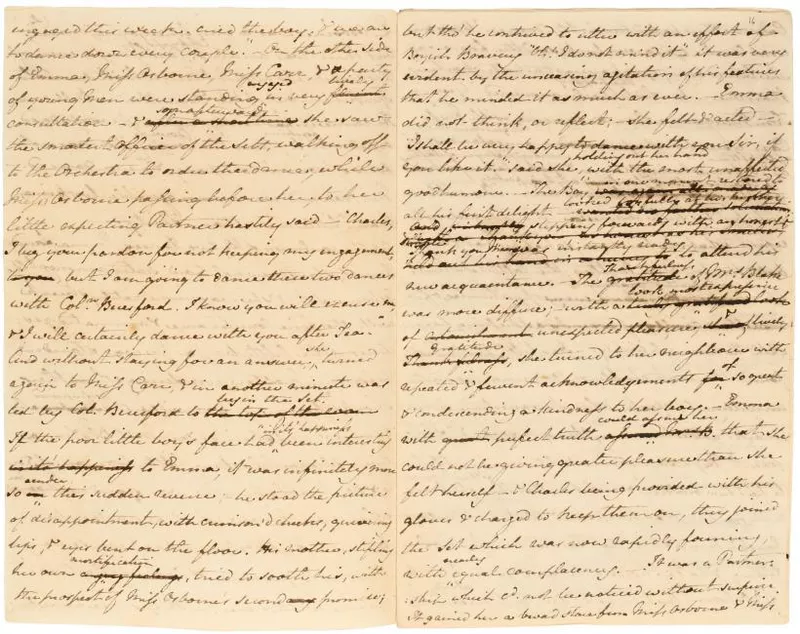 engaged this week. cried the boy, & we are
to dance down every couple." – On the other side
of Emma, Miss Osborne, Miss Carr, & a party
of young Men were standing engaged in very lively
consultation – & soon afterwards she saw
the smartest officer of the sett, walking off
to the Orchestra to order the dance, while
Miss Osborne passing before her, to her
little expecting Partner hastily said – "Charles,
I beg your pardon for not keeping my engagement,
but I am going to dance these two dances
with Coln Beresford. I know you will excuse me
& I will certainly dance with you after Tea."
And without staying for an answer, she turned
again to Miss Carr, & in another minute was
led by Col. Beresford to begin the set.
If the poor little boy's face had in its happiness been interesting
to Emma, it was infinitely more
so under this sudden reverse; – he stood the picture
of disappointment, with crimson'd cheeks, quivering
lips, & eyes bent on the floor. His mother, stifling
her own mortification, tried to sooth his, with
the prospect of Miss Osborne's second promise;
16
but tho' he contrived to utter with an effort of
Boyish Bravery "Oh! I do not mind it" – it was very
evident by the unceasing agitation of his features
that he minded it as much as ever. – Emma
did not think, or reflect; – she felt & acted –
"I shall be very happy to dance with you Sir, if
you like it." said she, holding out her hand with the most unaffected
good humour. – The Boy in one moment restored to
all his first delight looked joyfully at his Mother
and stepping forwards with an honest &
simple Thank you Maam was instantly ready
to attend his
new acquaintance. – The Thankfulness of Mrs Blake
was more diffuse; – with a look most expressive
of unexpected pleasure, & lively
gratitude, she turned to her neighbour with
repeated & fervent acknowledgements of so great
& condescending a kindness to her boy. – Emma
with perfect truth could assure her that she
could not be giving greater pleasure than she
felt herself – & Charles being provided with his
gloves & charged to keep them on, they joined
the Set which was now rapidly forming,
with nearly equal complacency. – It was a Partner-
ship which cd. not be noticed without surprise.
It gained her a broad stare from Miss Osborne & Miss